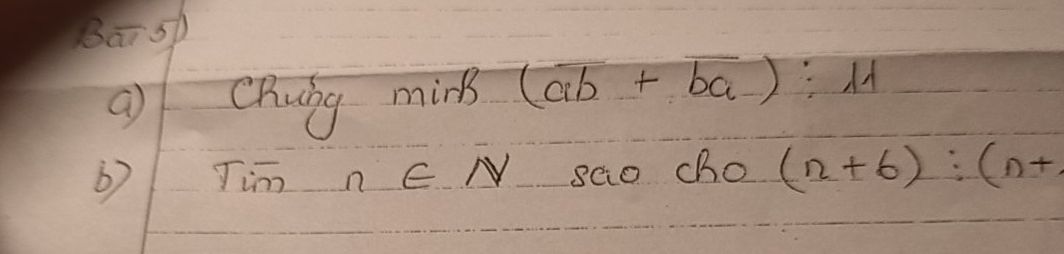 Bài 5)
a) Chứng minh (a̅b̅ + b̅a̅) ⋮ 11
b) Tìm n ∈ N sao cho (n+6) ⋮ (n+